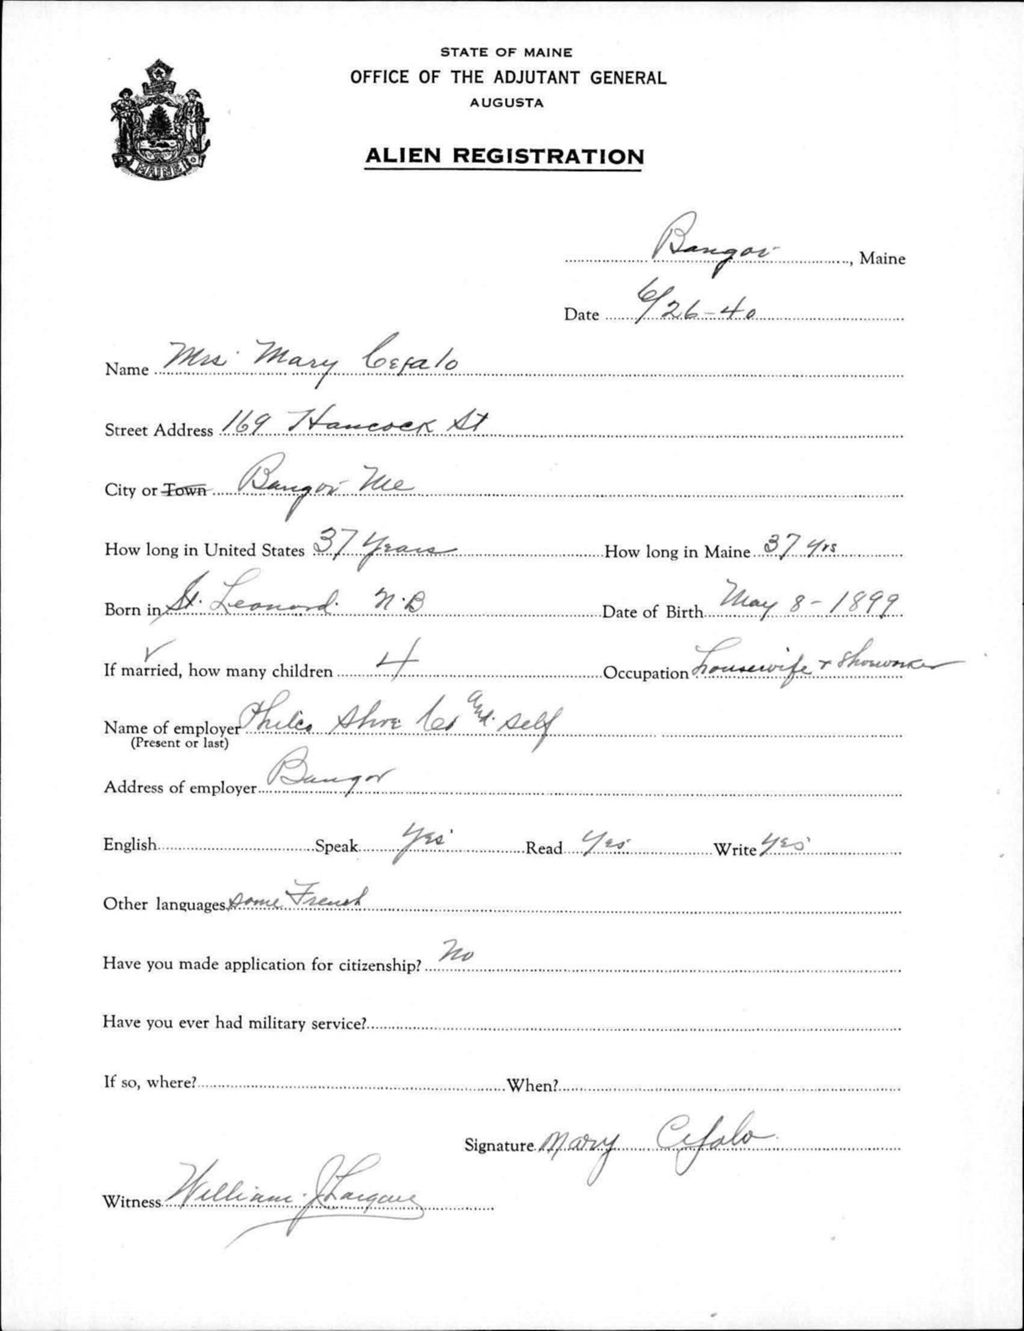 STATE OF MAINE
OFFICE OF THE ADJUTANT GENERAL
AUGUSTA
MAINE
ALIEN REGISTRATION
Bangor, Maine
Date 6/26-40
Name Mrs. Mary Cefalo
Street Address 169 Hancock St
City or Town Bangor Me
How long in United States 37 Years How long in Maine 37 yrs
Born in St. Leonard. N.B Date of Birth May 8-1899
If married, how many children 4 Occupation Housewife + Shoeworker
Name of employer Philco Shoe Co and self
(Present or last)
Address of employer Bangor
English Speak Yes Read Yes Write Yes
Other languages some French
Have you made application for citizenship? No
Have you ever had military service?
If so, where? When?
Signature Mary Cefalo
Witness William J.